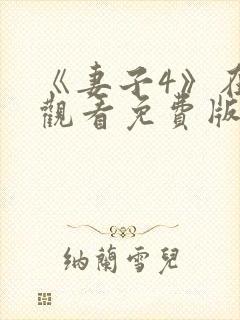 《妻子4》在
觀看免費版
納蘭雪兒